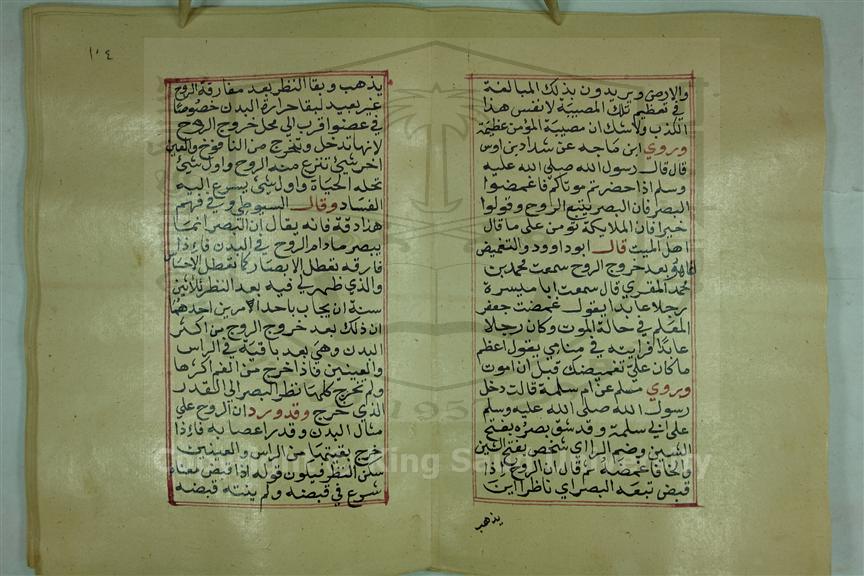 والارض ويريدون بذلك المبالغة
في تعظيم تلك المصيبة لا نفس هذا
الكذب ولا شك ان مصيبة المؤمن عظيمة
وروي ابن ماجه عن شداد بن اوس
قال قال رسول الله صلي الله عليه
وسلم اذا حضرتم موتاكم فاغمضوا
البصر فان البصر يتبع الروح وقولوا
خيرا فان الملايكة تؤمن علي ما قال
اهل الميت قال ابو داوود والتغميض
انما هو بعد خروج الروح سمعت محمد بن
محمد المقري قال سمعت ابا ميسرة
رجلا عابدا يقول غمضت جعفر
المعلم في حالة الموت وكان رجلا
عابدا فرايته في منامي يقول اعظم
ما كان علي تغميضك قبل ان اموت
وروي مسلم عن ام سلمة قالت دخل
رسول الله صلي الله عليه وسلم
علي ابي سلمة وقد شق بصره بفتح
الشين وضم الراي شخص بفتح الشين
والخا فاغمضه ثم قال ان الروح اذا
قبض تبعه البصر اي ناظرا اين
يذهب
١٠٤
يذهب وبقا النظر بعد مفارقة الروح
غير بعيد لبقا حرارة البدن خصوصا
في عضو اقرب الي محل خروج الروح
لانها تدخل وتخرج من اليافوخ والعين
اخر شيئ تنزع منه الروح واول شيئ
تحله الحياة واول شيئ يسرع اليه
الفساد وقال السيوطي وفي فهم
هذا دقة فانه يقال ان البصر انما
يبصر ما دام الروح في البدن فاذا
فارقه تعطل الابصار كما تعطل الاحساس
والذي ظهر لي فيه بعد النظر ثلاثين
سنة ان يجاب باحد امرين احدهما
ان ذلك بعد خروج الروح من اكثر
البدن وهي بعد باقية في الراس
والعينين فاذا خرج من الفم اكثرها
ولم تخرج كلها نظر البصر الي القدر
الذي خرج وقد ورد ان الروح علي
مثال البدن وقدر اعضايه فاذا
خرج بقيتها من الراس والعينين
سكن النظر فيكون قوله اذا قبض معناه
شرع في قبضه ولم ينته قبضه
Copyright © King Saud University
195